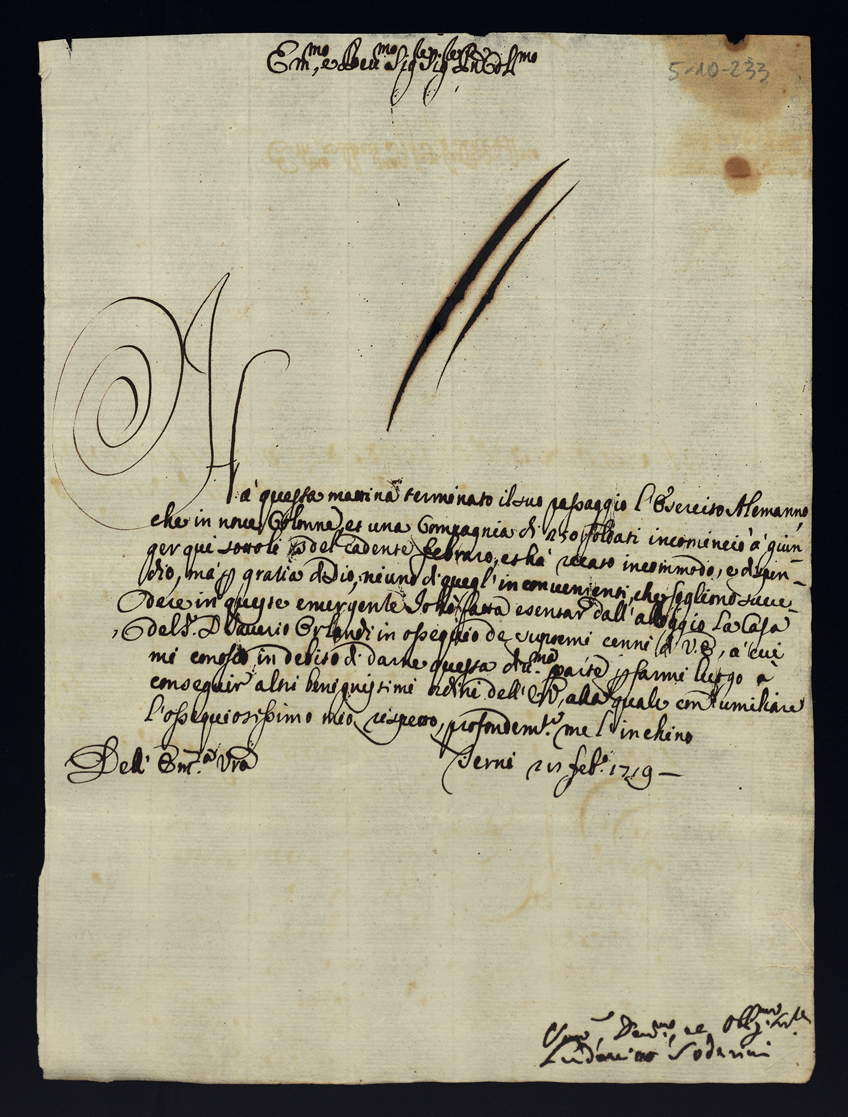 Em.mo, e Rev.mo Sig.r Sig.r Pne Col.mo
5-10-233
Hà questa mattina terminato il suo passaggio l'Esercito Alemanno,
che in nove Colonne, et una Compagnia di 250 soldati incominciò à giun-
ger qui sotto li del cadente Febraro, et hà recato incommodo, e dispen-
dio, mà p gratia d Dio, niuno di quegl'inconvenienti, che sogliono succe-
dere in queste emergente Io hò fatta esentar dall'alloggio la Casa
del S. Saverio Orlandi in ossequio de supremi cenni d V.E., à cui
mi conosco in debito di darne questa parte p farmi luogo à
conseguir altri benignissimi ordini dell'E.V., alla quale con umiliare
l'ossequiosissimo mio rispetto, profondem.te me l'inchino
Dell' Em.a Vra Terni feb.o 1719 -
Um.mo Dev.mo et Obblig.mo
Soderini